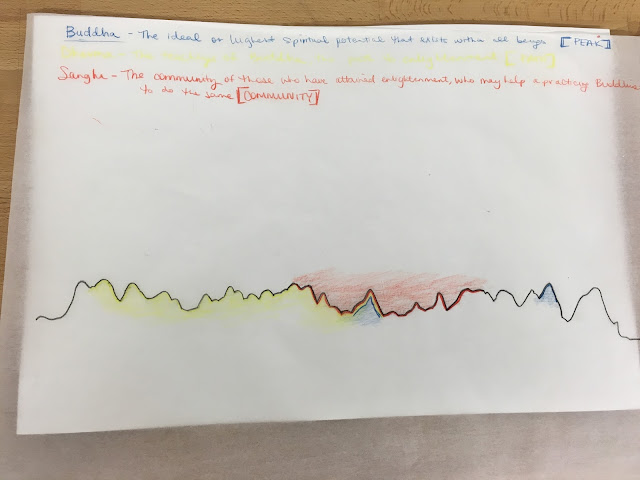 Buddha - The ideal or highest spiritual potential that exists within all beings [PEAK]
Dharma - The teachings of Buddha, the path to enlightenment
Sangha - The community of those who have attained enlightenment, who may help a practicing Buddhist
to do the same [COMMUNITY]